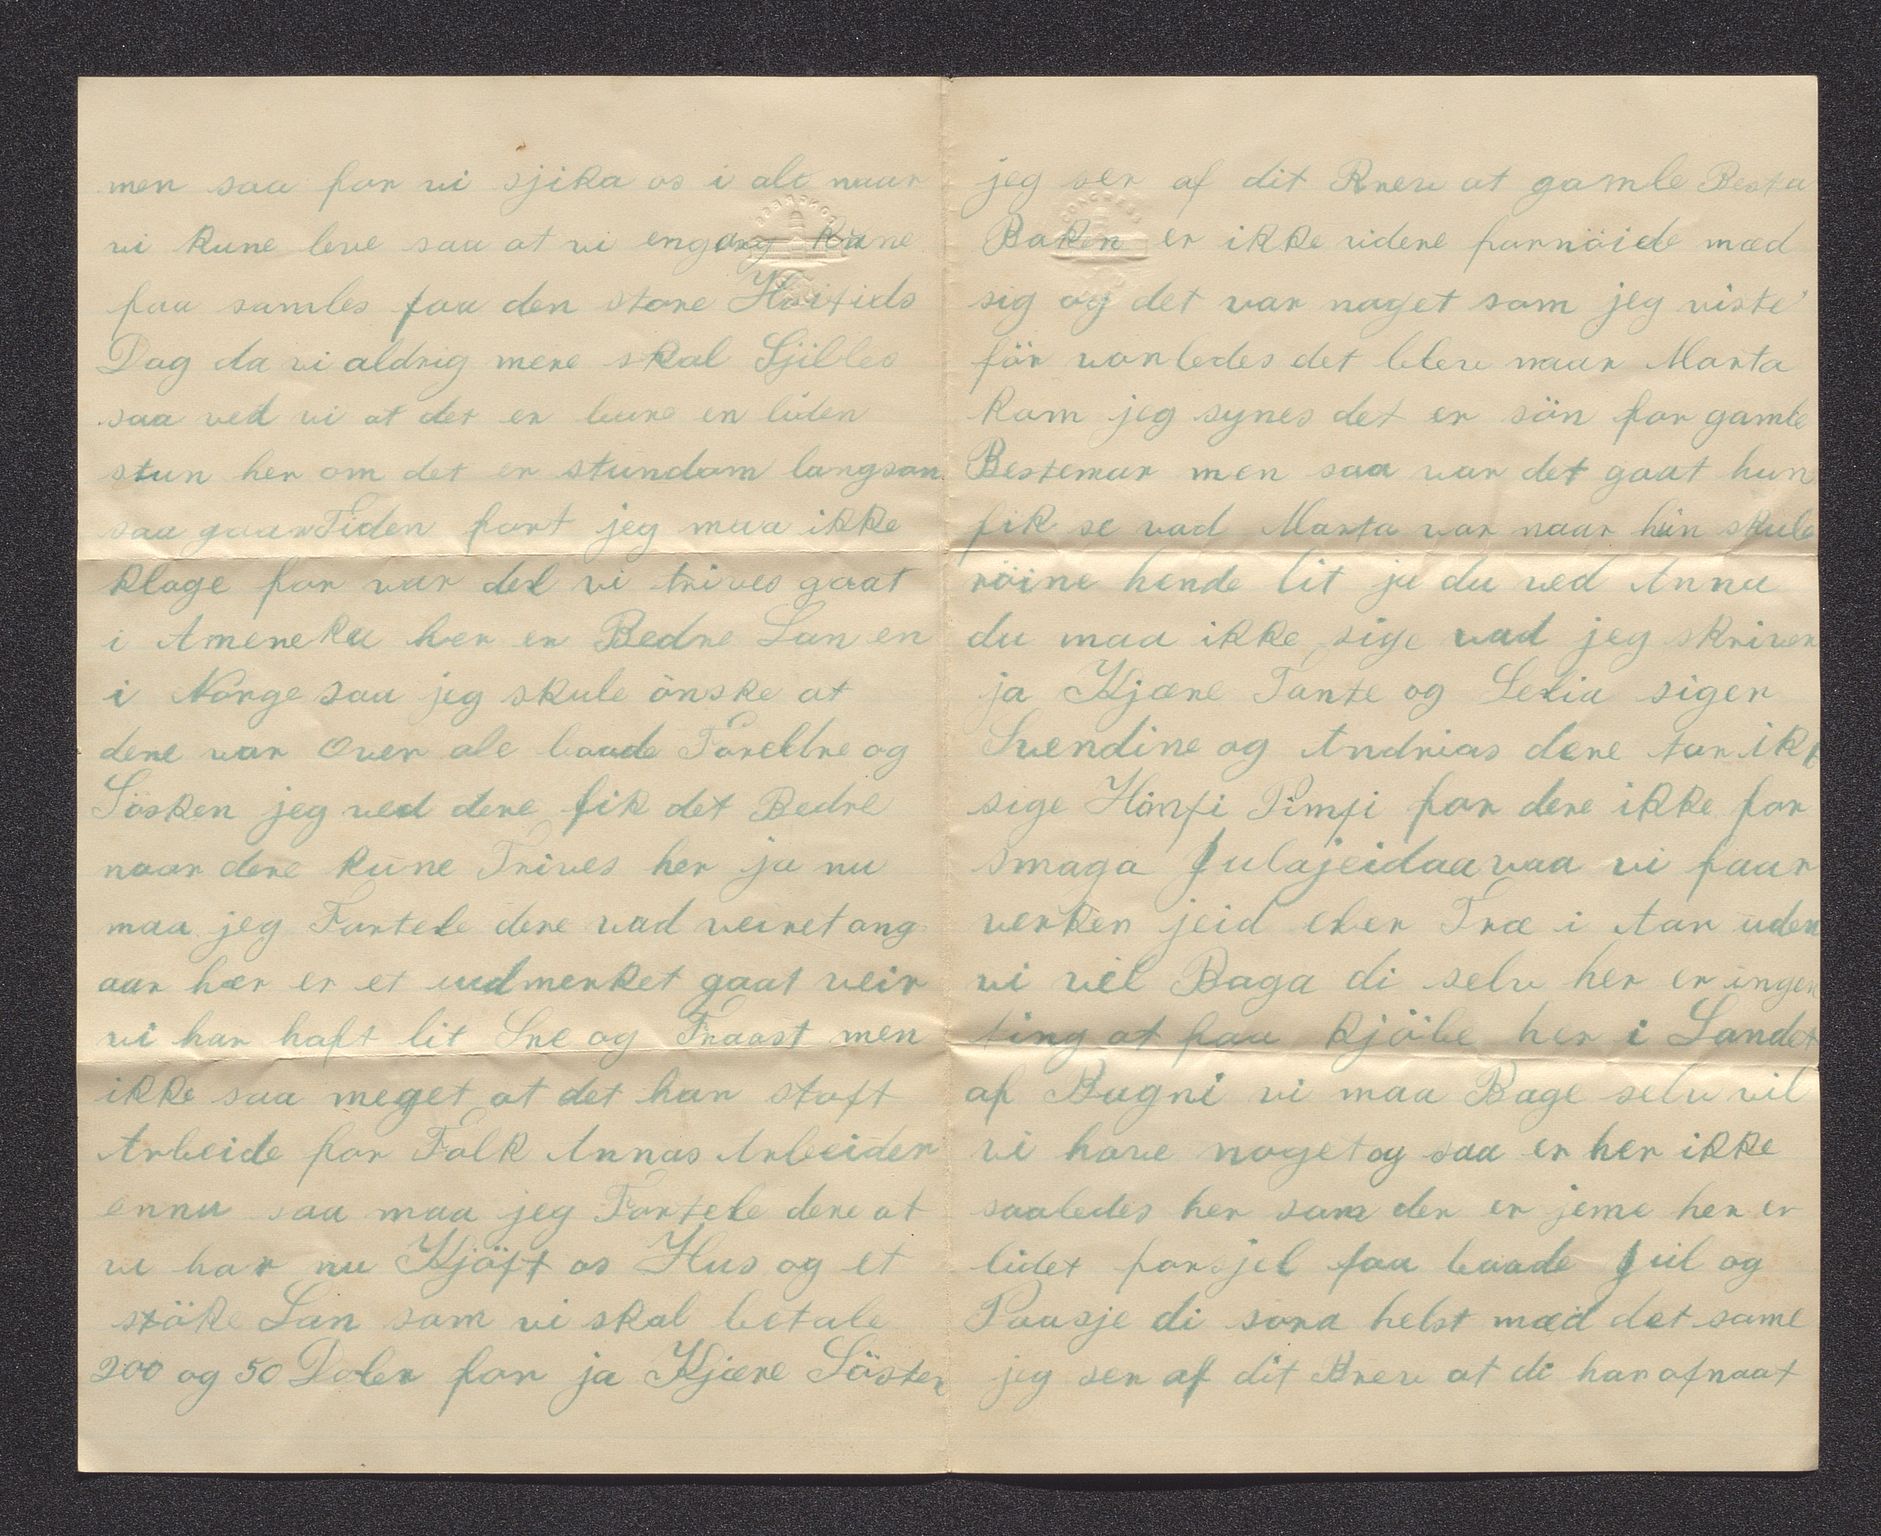 men saa for vi sjika os i alt naar
vi kune leve saa at vi engang kune
faa samles paa den store Høitids
Dag da vi aldrig mere skal Sjilles
saa ved vi at det er bare en liden
stun her om det er stundom langsom
saa gaar Tiden fort jeg maa ikke
klage for var del vi trives gaat
i Amereka her er Bedre Lan en
i Norge saa jeg skule önske at
dere var Over ale baade Foreldre og
Sösken jeg ved dere fik det Bedre
naar dere kune Trives her ja nu
maa jeg Fortele dere vad veiret ang
aar her er et udmerket gaat veir
vi har haft lit Sne og Fraast men
ikke saa meget at det har staft
Arbeide for Folk Annas Arbeider
ennu saa maa jeg Fortele dere at
vi har nu Kjöft os Hus og et
stöke Lan som vi skal betale
200 og 50 Doler for ja Kjære Söster
jeg ser af dit Brev at gamle Besta
Baken er ikke videre fornöide med
sig og det var naget som jeg viste
för vorledes det blev naar Marta
kom jeg synes det er sön for gamle
Bestemor men saa var det gaat hun
fik se vad Marta var naar hun skule
röine hende lit ja du ved Anna
du maa ikke sige vad jeg skriver
ja Kjære Tante og Selia siger
Svendine og Andrias dere tar ikk
sige Himpi Pimpi for dere ikke for
smaga Julajeidaavaa vi faar
verken jeid eler Træ i Aar uden
vi vil Baga di selv her er ingen
ting at faa kjöbe her i Landet
af Bagni vi maa Bage selv vil
vi have noget og saa er her ikke
saaledes her som der er jeme her er
lidet forsjel paa baade Jul og
Paasje di sora helst mæd det same
jeg ser af dit Brev at di har ofnaat